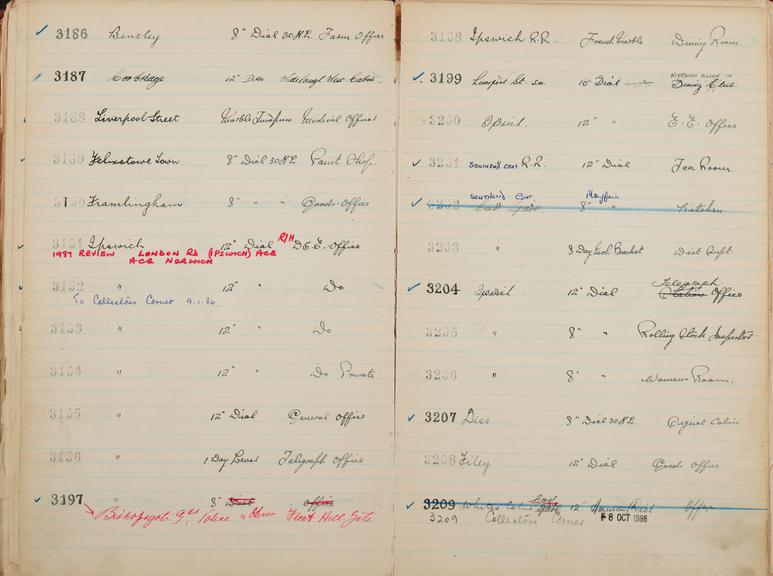 3186 Bentley 8" Dial 30 H.L. Farm Office
3187 12" Dial Cabin
3188 Liverpool Street Marble Timepiece Medical Officer
3189 Felixstowe Town 8" Dial 30 H.L. Paint Shop.
3190 Framlingham 8" " Goods Office
3191 Ipswich 12" Dial R/H D.C.E. Office
1987 REVIEW LONDON RD (IPSWICH) ACE
ACE NORWICH
3192 " 12" " Do
To Collectors Corner 9.1.86.
3193 " 12" " Do
3194 " 12" " Do Private
3195 " 12" Dial General Office
3196 " 1 Day Lever Telegraph Office
3197 " 8" Dial Office
Bishopsgate Gds Police
3198 Ipswich R.R. French Marble Dining Room
KITCHEN CLOCK IN
3199 Liverpool St. Stn. 10" Dial Dining Club.
3200 Ipswich. 12" " E. E. Office
3201 SOUTHEND R.R. 12" Dial Tea Room
SOUTHEND
3202 East Gate 8" " Kitchen
3203 " 8 Day Bracket Dist Supt.
Telegraph
3204 Ipswich 12" Dial Station Office
3205 " 8" " Rolling Stock Inspector
3206 " 8" " Womens Room.
3207 Diss 8" Dial 30 H.L. Signal Cabin
3208 Filey 12" Dial Goods Office
3209 Whites Colne 12" American Dial Office
3209 Collectors Corner 8 OCT 1986